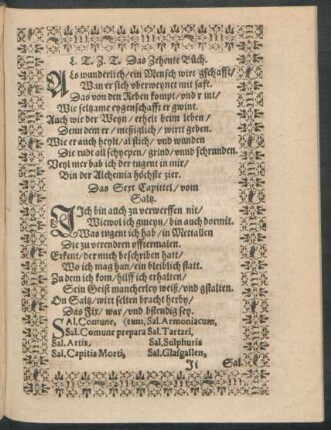 L. T. Z. T. Das Zehente Buch.
Als wunderlich/ ein Mensch wirt gschafft/
Wan er sich uberweynet mit saft.
Das von den Reben kompt/ vnd rint/
Wie seltzame eygenschafft er gwint.
Auch wie der Weyn/ erhelt beim leben/
Dem dem er/ meßiglich/ wirtt geben.
Wie er auch heylt/ al stich/ vnd wunden
Die rudt all schyepen/ grind/ vnnd schrunden.
Veyl mer hab ich der tugent in mir/
Bin der Alchemia höchste zier.
Das Sext Capittel/ vom
Saltz.
Ich bin auch zu verwerffen nit/
Wievol ich gmeyn/ bin auch dormit.
Was tugent ich hab/ in Mettallen
Die zu verendern offtermalen.
Erkent/ der mich beschriben hatt/
Wo ich mag han/ ein bleiblich statt.
Zu dem ich kom/ hilff ich erhalten/
Sein Geist mancherley weiß/ vnd gstalten.
On Saltz/ wirt selten bracht herby/
Das Fix/ war/ vnd bstendig sey.
SAl. Comune, (tum, Sal. Armoniacum,
Sal. Comune prepara Sal. Tartari,
Sal. Artis, Sal. Sulphuris
Sal. Capitis Morti, Sal. Glasgallen,
Ii Sal.